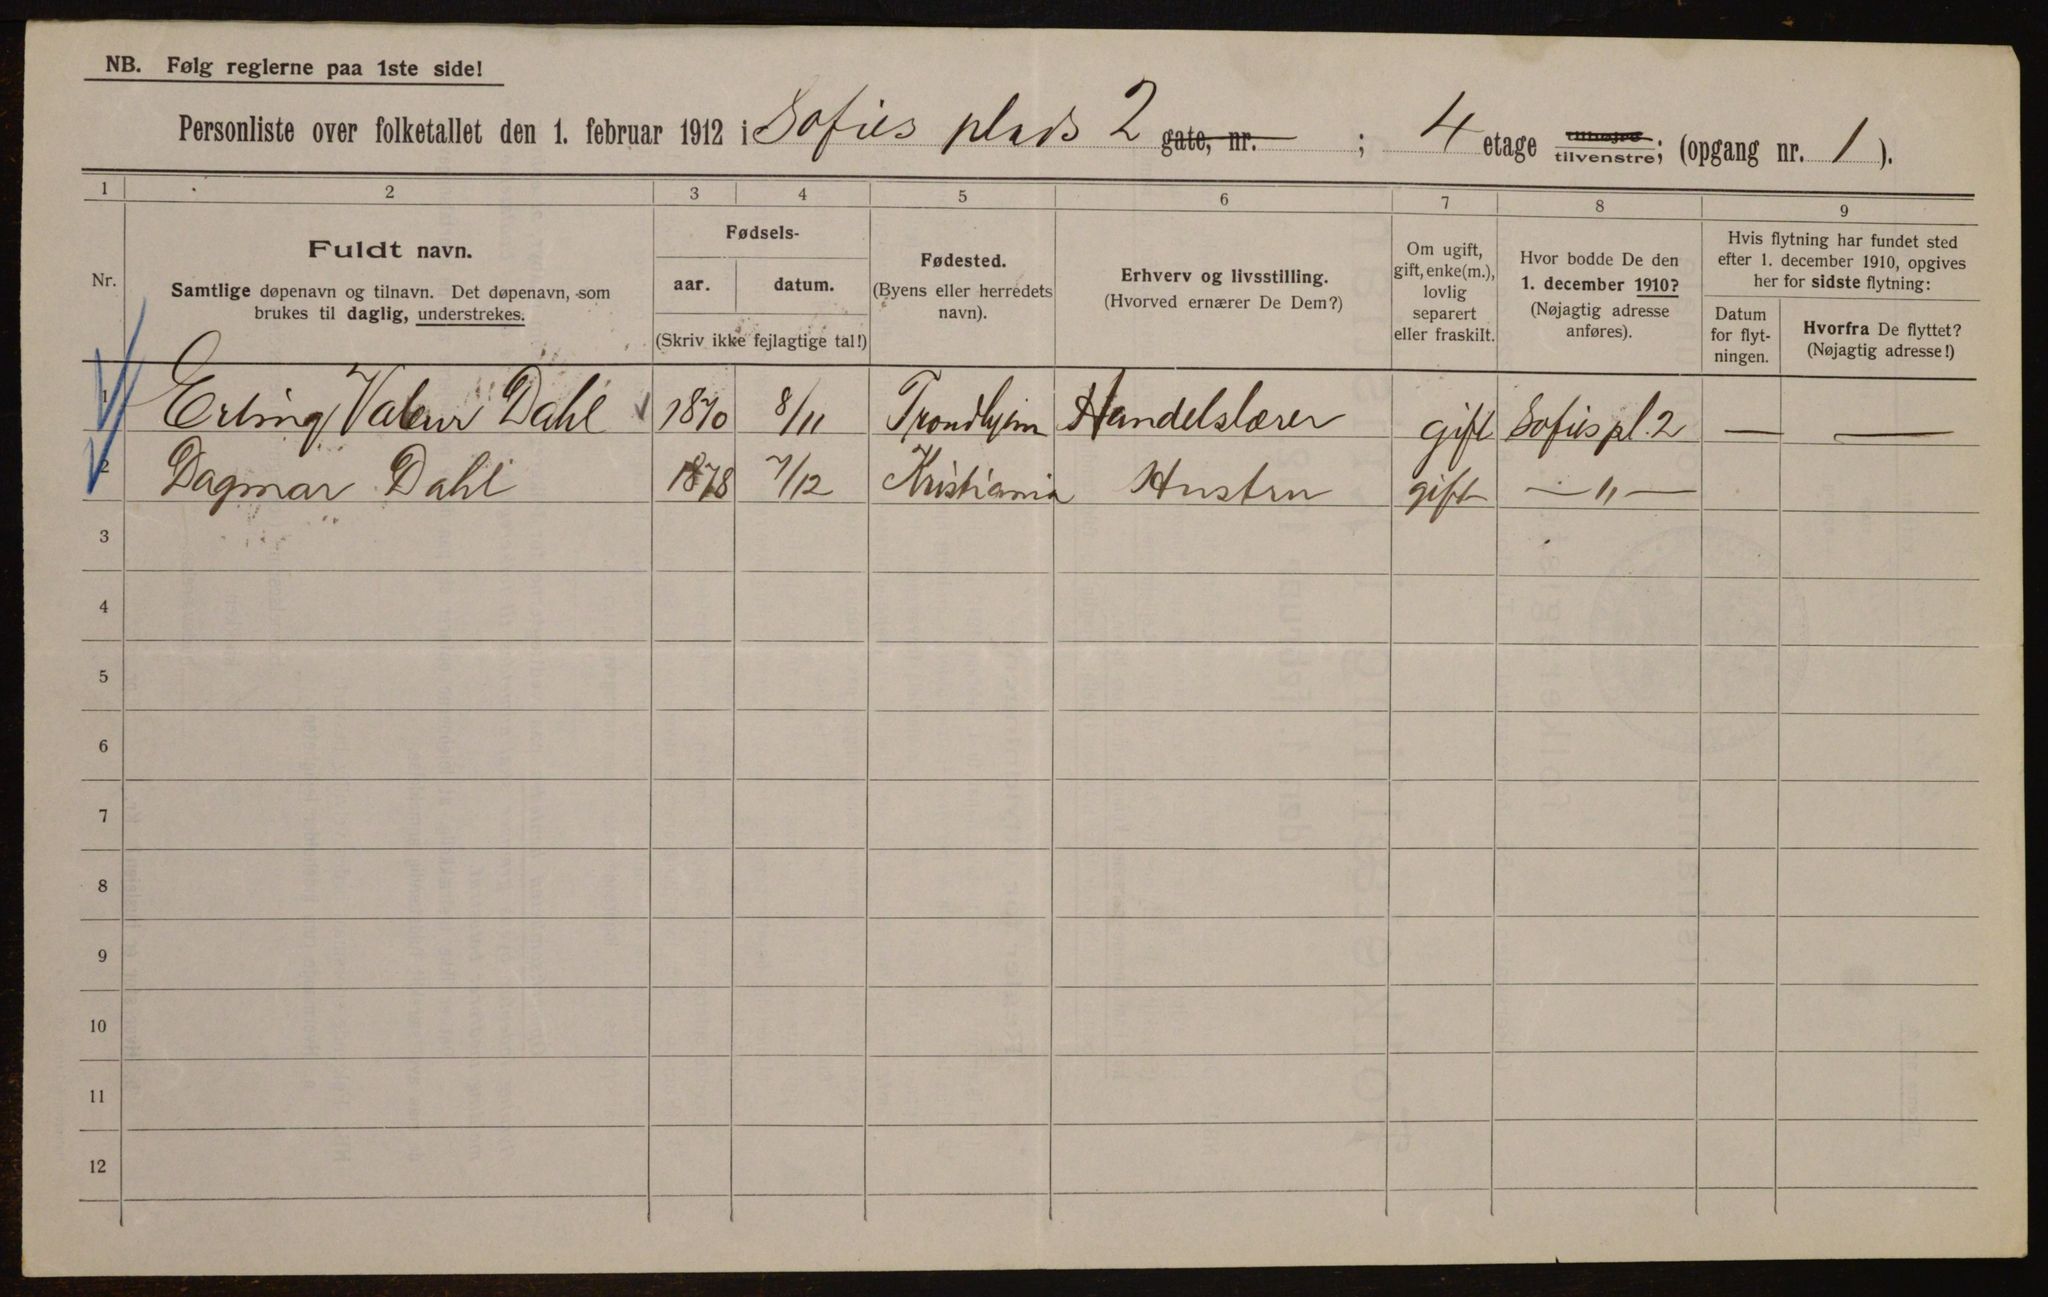 NB. Følg reglerne paa 1ste side!
Personliste over folketallet den 1. februar 1912 i Sofies plads 2 gate, nr. ; 4 etage tilhøjre tilvenstre; (opgang nr. 1 ).
1 2 3 4 5 6 7 8 9
Nr.
Fuldt navn.
Samtlige døpenavn og tilnavn. Det døpenavn, som
brukes til daglig, understrekes.
Fødsels-
aar. datum.
(Skriv ikke fejlagtige tal!)
Fødested.
(Byens eller herredets
navn).
Erhverv og livsstilling.
(Hvorved ernærer De Dem?)
Om ugift,
gift, enke(m.),
lovlig
separert
eller fraskilt.
Hvor bodde De den
1. december 1910?
(Nøjagtig adresse
anføres).
Hvis flytning har fundet sted
efter 1. december 1910, opgives
her for sidste flytning:
Datum
for flyt-
ningen.
Hvorfra De flyttet?
(Nøjagtig adresse!)
1 Erling Valeur Dahl 1870 8/11 Trondhjem Handelslærer gift Sofies pl. 2 — —
2 Dagmar Dahl 1878 7/12 Kristiania Hustru gift — " —
3
4
5
6
7
8
9
10
11
12